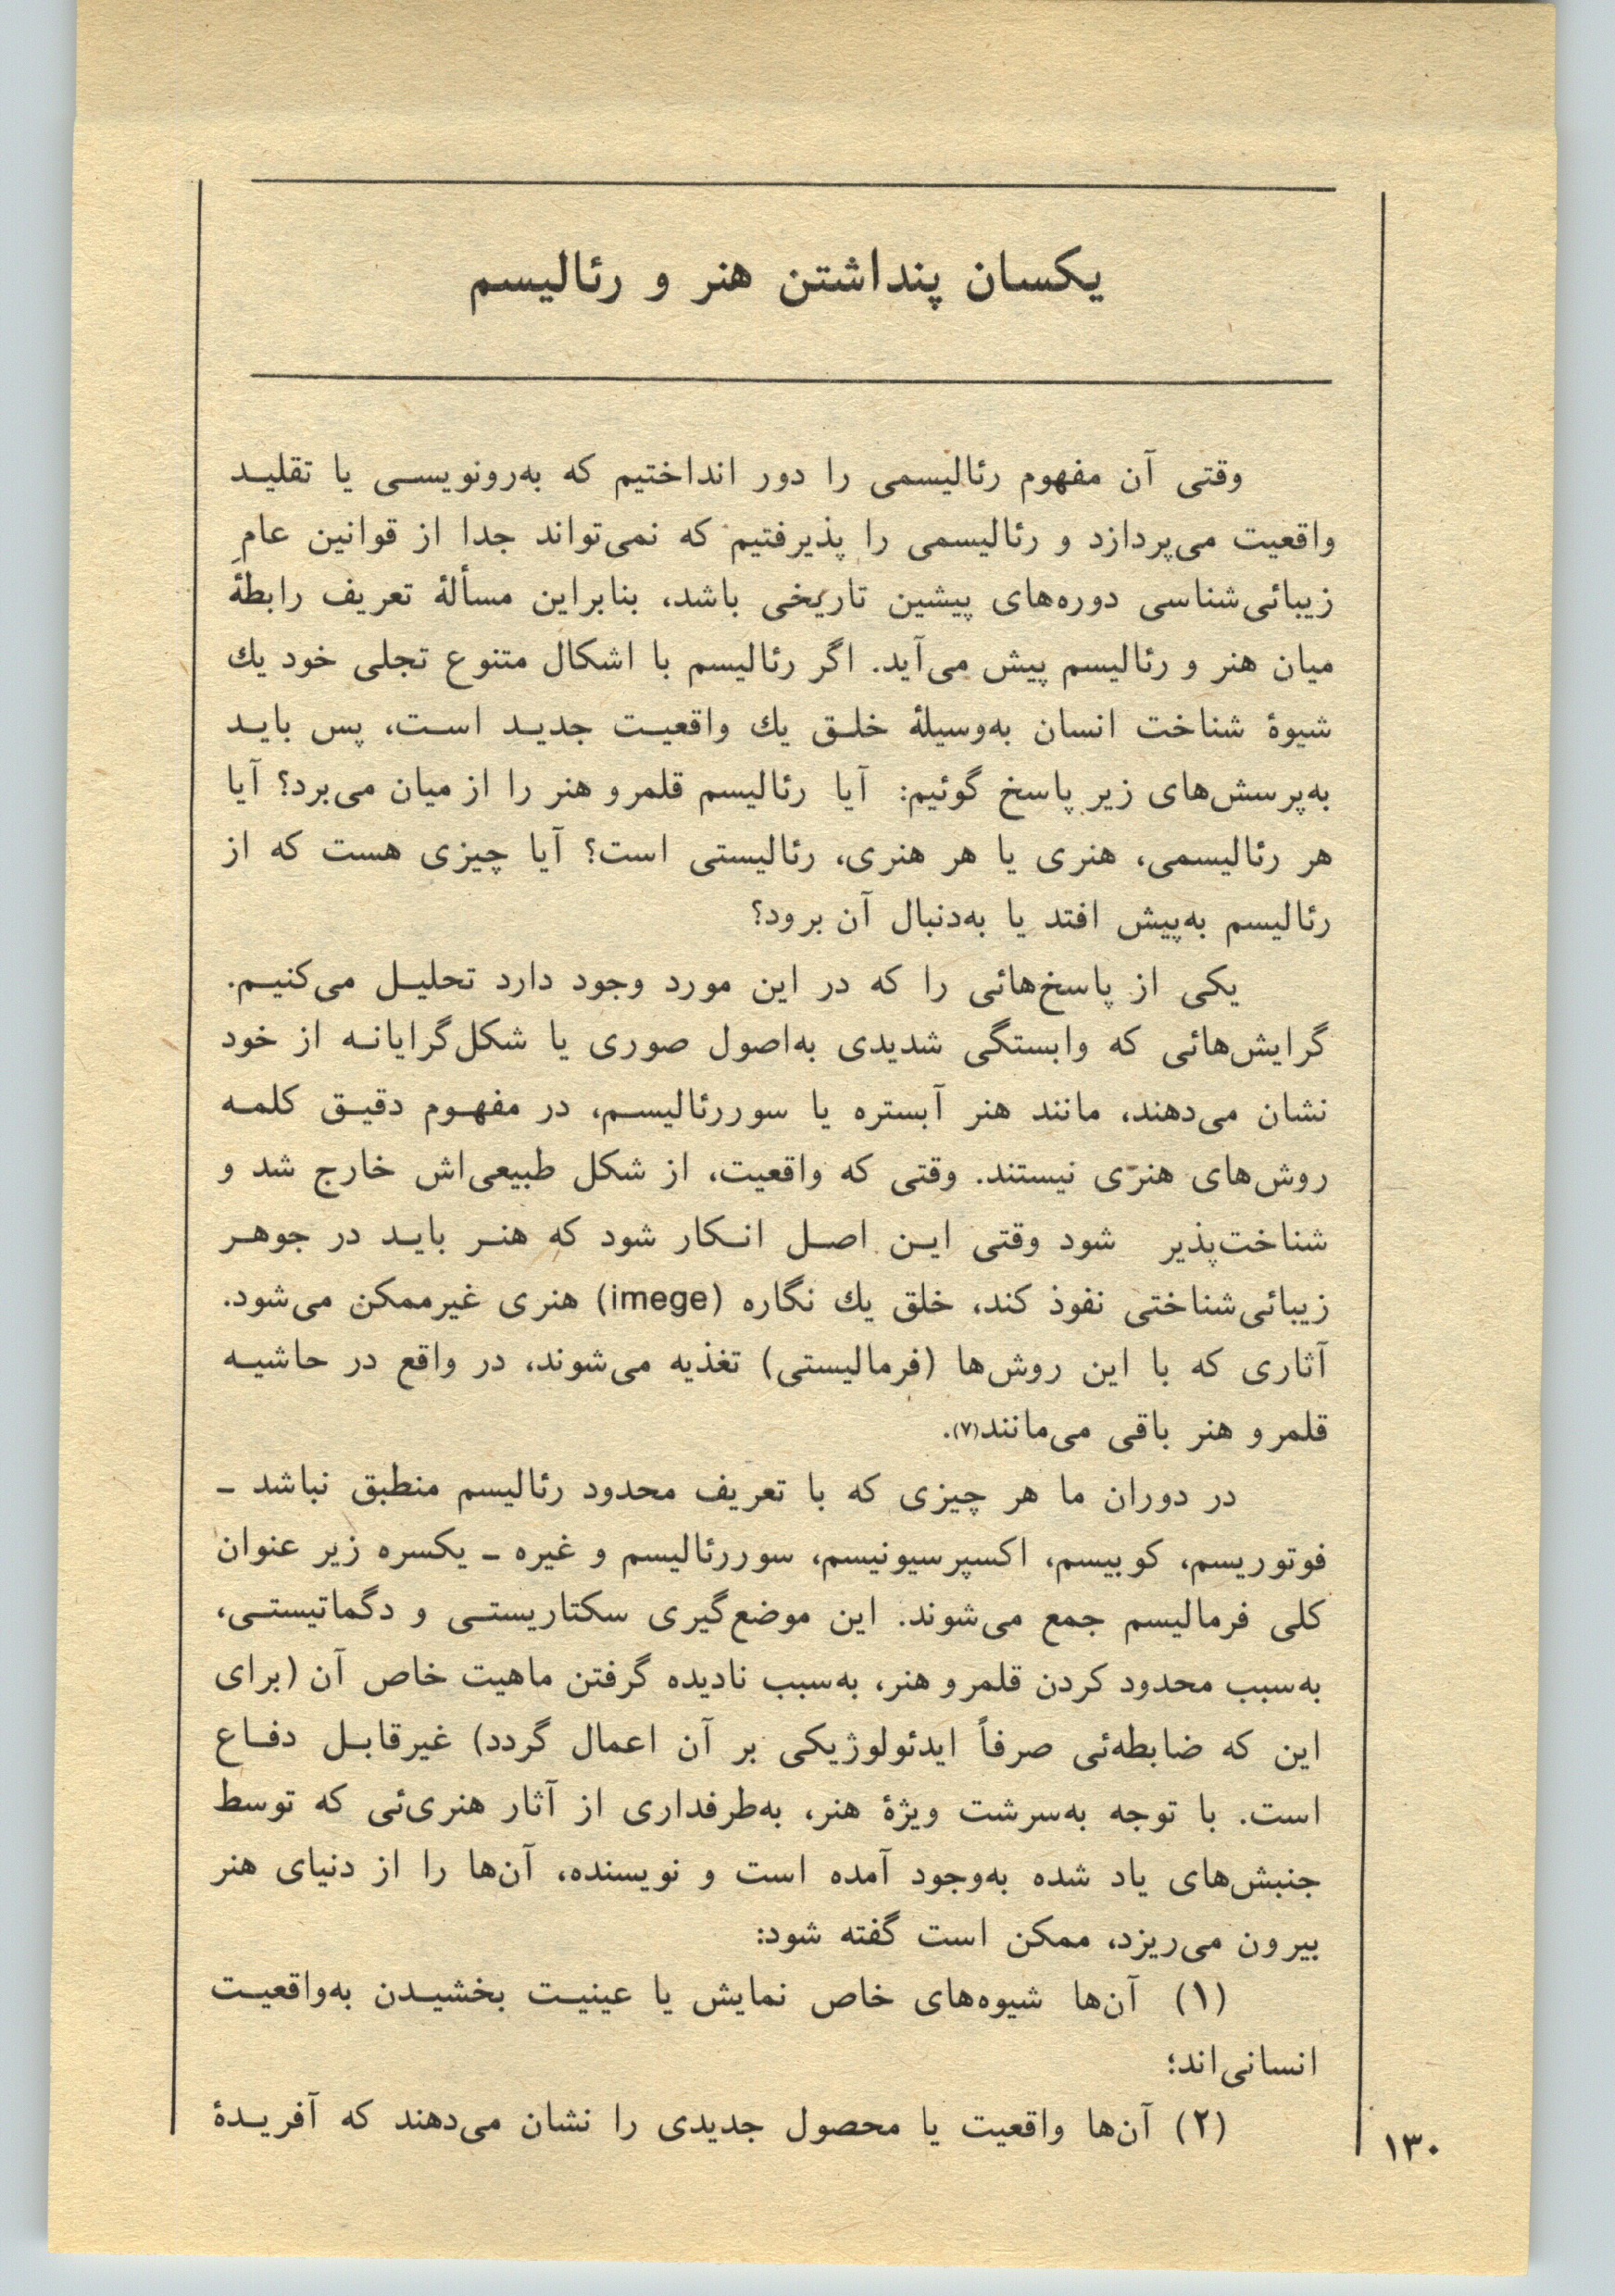 یکسان پنداشتن هنر و رئالیسم
وقتی آن مفهوم رئالیسمی را دور انداختیم که به‌رونویسی یا تقلید
واقعیت می‌پردازد و رئالیسمی را پذیرفتیم که نمی‌تواند جدا از قوانین عامِ
زیبائی‌شناسی دوره‌های پیشین تاریخی باشد، بنابراین مسألهٔ تعریف رابطهٔ
میان هنر و رئالیسم پیش می‌آید. اگر رئالیسم با اشکال متنوع تجلی خود یك
شیوهٔ شناخت انسان به‌وسیلهٔ خلق یك واقعیت جدید است، پس باید
به‌پرسش‌های زیر پاسخ گوئیم: آیا رئالیسم قلمرو هنر را از میان می‌برد؟ آیا
هر رئالیسمی، هنری یا هر هنری، رئالیستی است؟ آیا چیزی هست که از
رئالیسم به‌پیش افتد یا به‌دنبال آن برود؟
یکی از پاسخ‌هائی را که در این مورد وجود دارد تحلیل می‌کنیم.
گرایش‌هائی که وابستگی شدیدی به‌اصول صوری یا شکل‌گرایانه از خود
نشان می‌دهند، مانند هنر آبستره یا سوررئالیسم، در مفهوم دقیق کلمه
روش‌های هنری نیستند. وقتی که واقعیت، از شکل طبیعی‌اش خارج شد و
شناخت‌پذیر شود وقتی این اصل انکار شود که هنر باید در جوهر
زیبائی‌شناختی نفوذ کند، خلق یك نگاره (imege) هنری غیرممکن می‌شود.
آثاری که با این روش‌ها (فرمالیستی) تغذیه می‌شوند، در واقع در حاشیه
قلمرو هنر باقی می‌مانند(۷).
در دوران ما هر چیزی که با تعریف محدود رئالیسم منطبق نباشد ـ
فوتوریسم، کوبیسم، اکسپرسیونیسم، سوررئالیسم و غیره ـ یکسره زیر عنوان
کلی فرمالیسم جمع می‌شوند. این موضع‌گیری سکتاریستی و دگماتیستی،
به‌سبب محدود کردن قلمرو هنر، به‌سبب نادیده گرفتن ماهیت خاص آن (برای
این که ضابطه‌ئی صرفاً ایدئولوژیکی بر آن اعمال گردد) غیرقابل دفاع
است. با توجه به‌سرشت ویژهٔ هنر، به‌طرفداری از آثار هنری‌ئی که توسط
جنبش‌های یاد شده به‌وجود آمده است و نویسنده، آن‌ها را از دنیای هنر
بیرون می‌ریزد، ممکن است گفته شود:
(۱) آن‌ها شیوه‌های خاص نمایش یا عینیت بخشیدن به‌واقعیت
انسانی‌اند؛
(۲) آن‌ها واقعیت یا محصول جدیدی را نشان می‌دهند که آفریدهٔ
۱۳۰